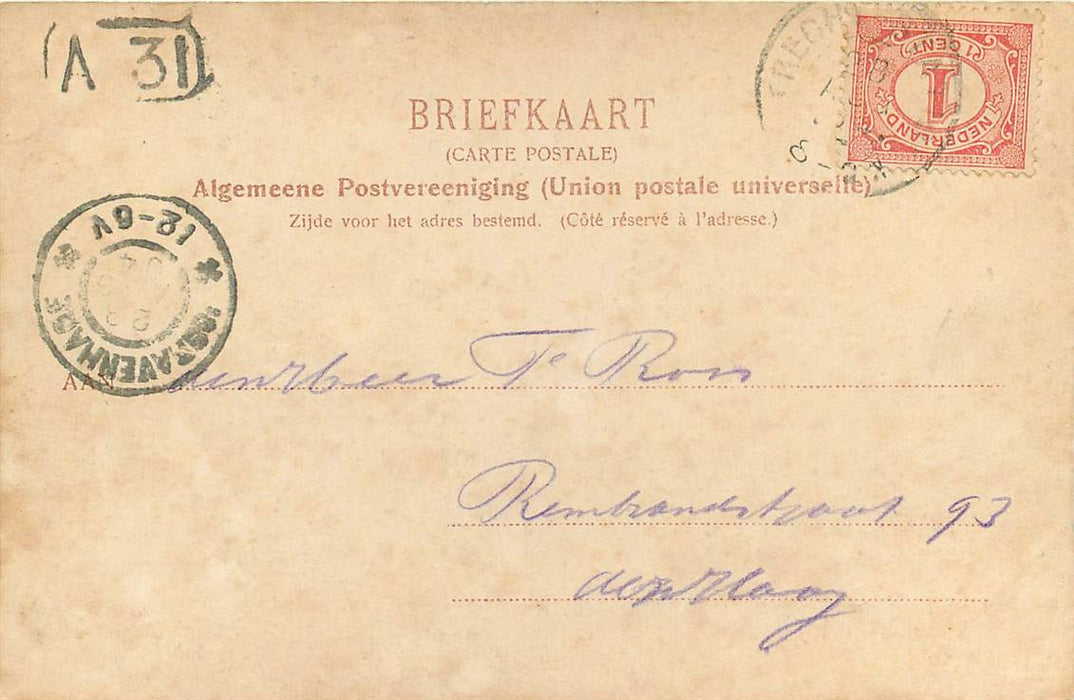 A 31
1 CENT
1
NEDERLAND
BRIEFKAART
(CARTE POSTALE)
Algemeene Postvereeniging (Union postale universelle)
Zijde voor het adres bestemd. (Côté réservé à l'adresse.)
12-6V
'SGRAVENHAGE
AAN den Heer Te Roos
Rembrandstraat 93
den Haag